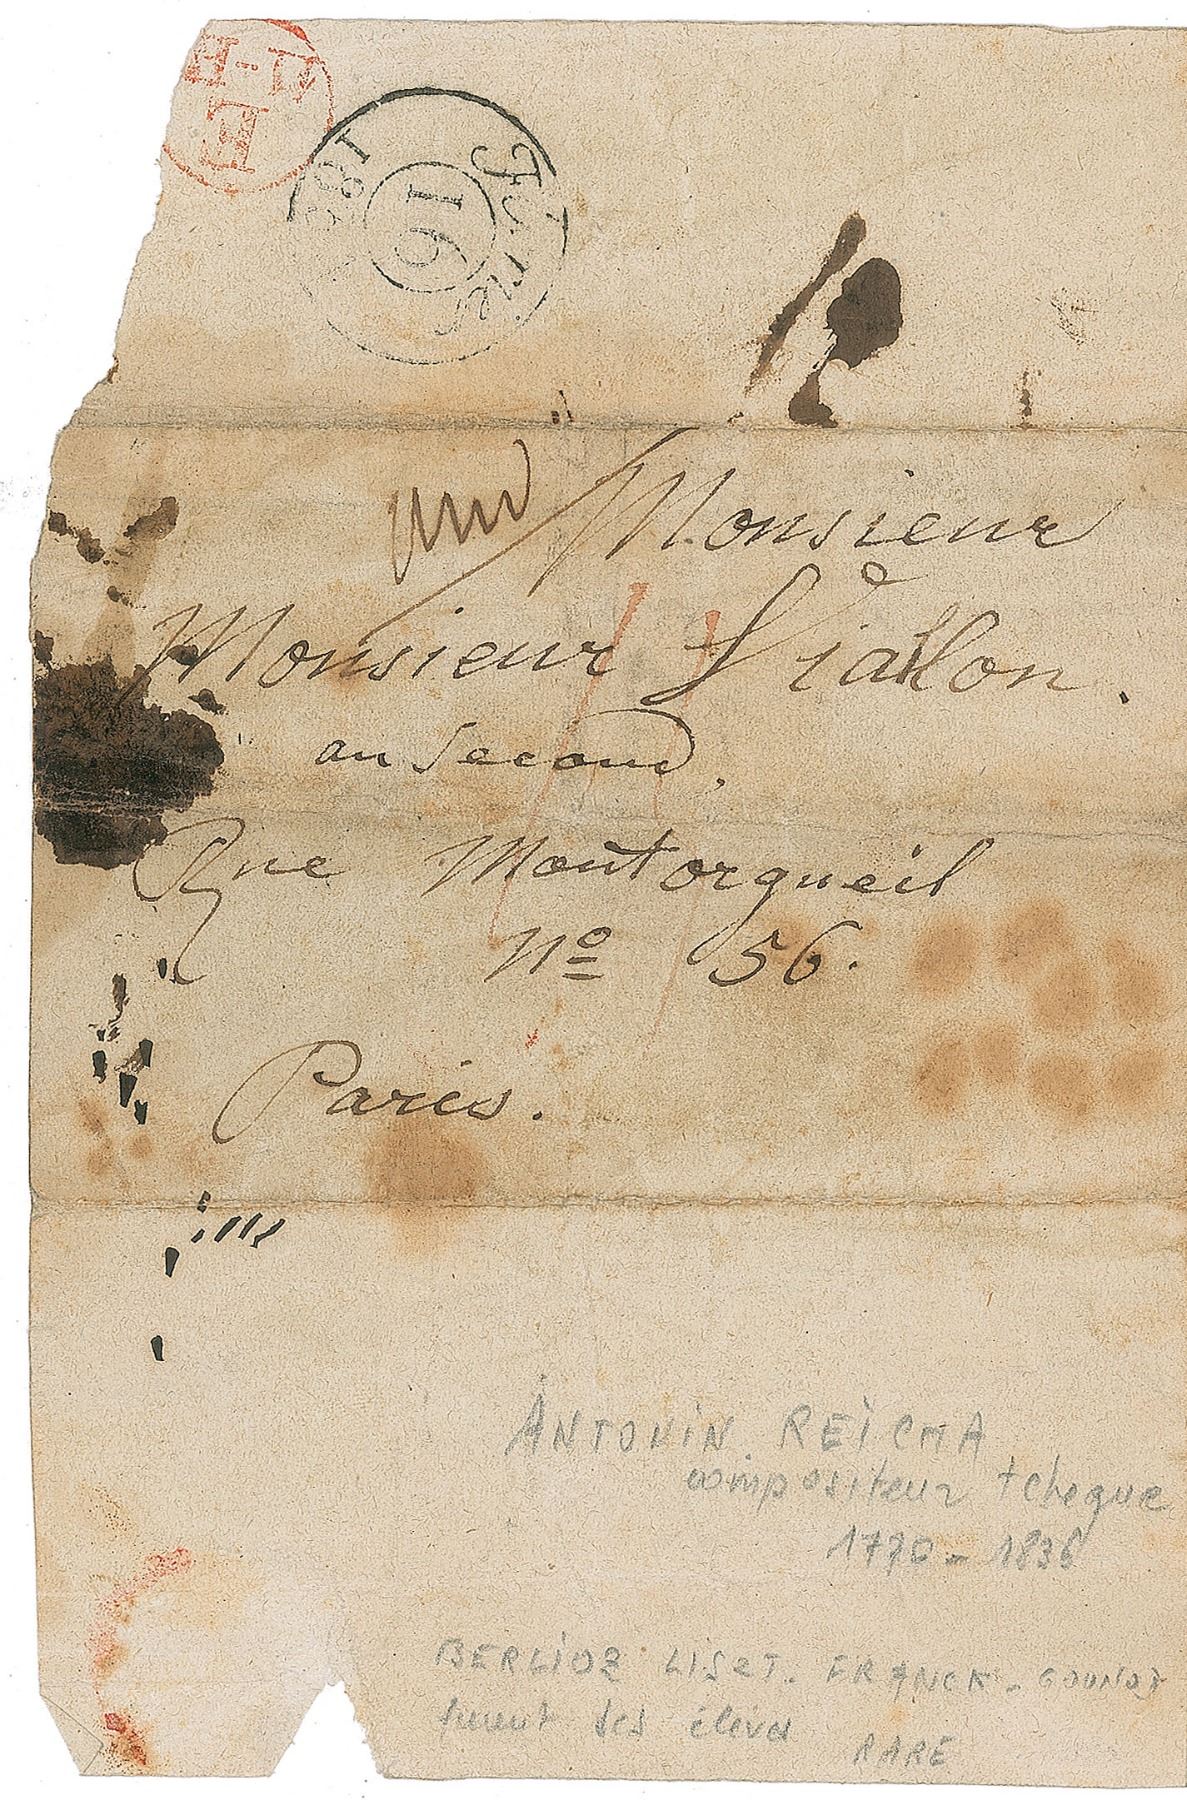 E
16
Monsieur
Monsieur Viallon.
au Second,
Rue Montorgueil
No 56.
Paris.
ANTONIN REICHA
compositeur tcheque
1770 - 1836
BERLIOZ LISZT. FRANCK - GOUNOD
furent ses élèves
RARE